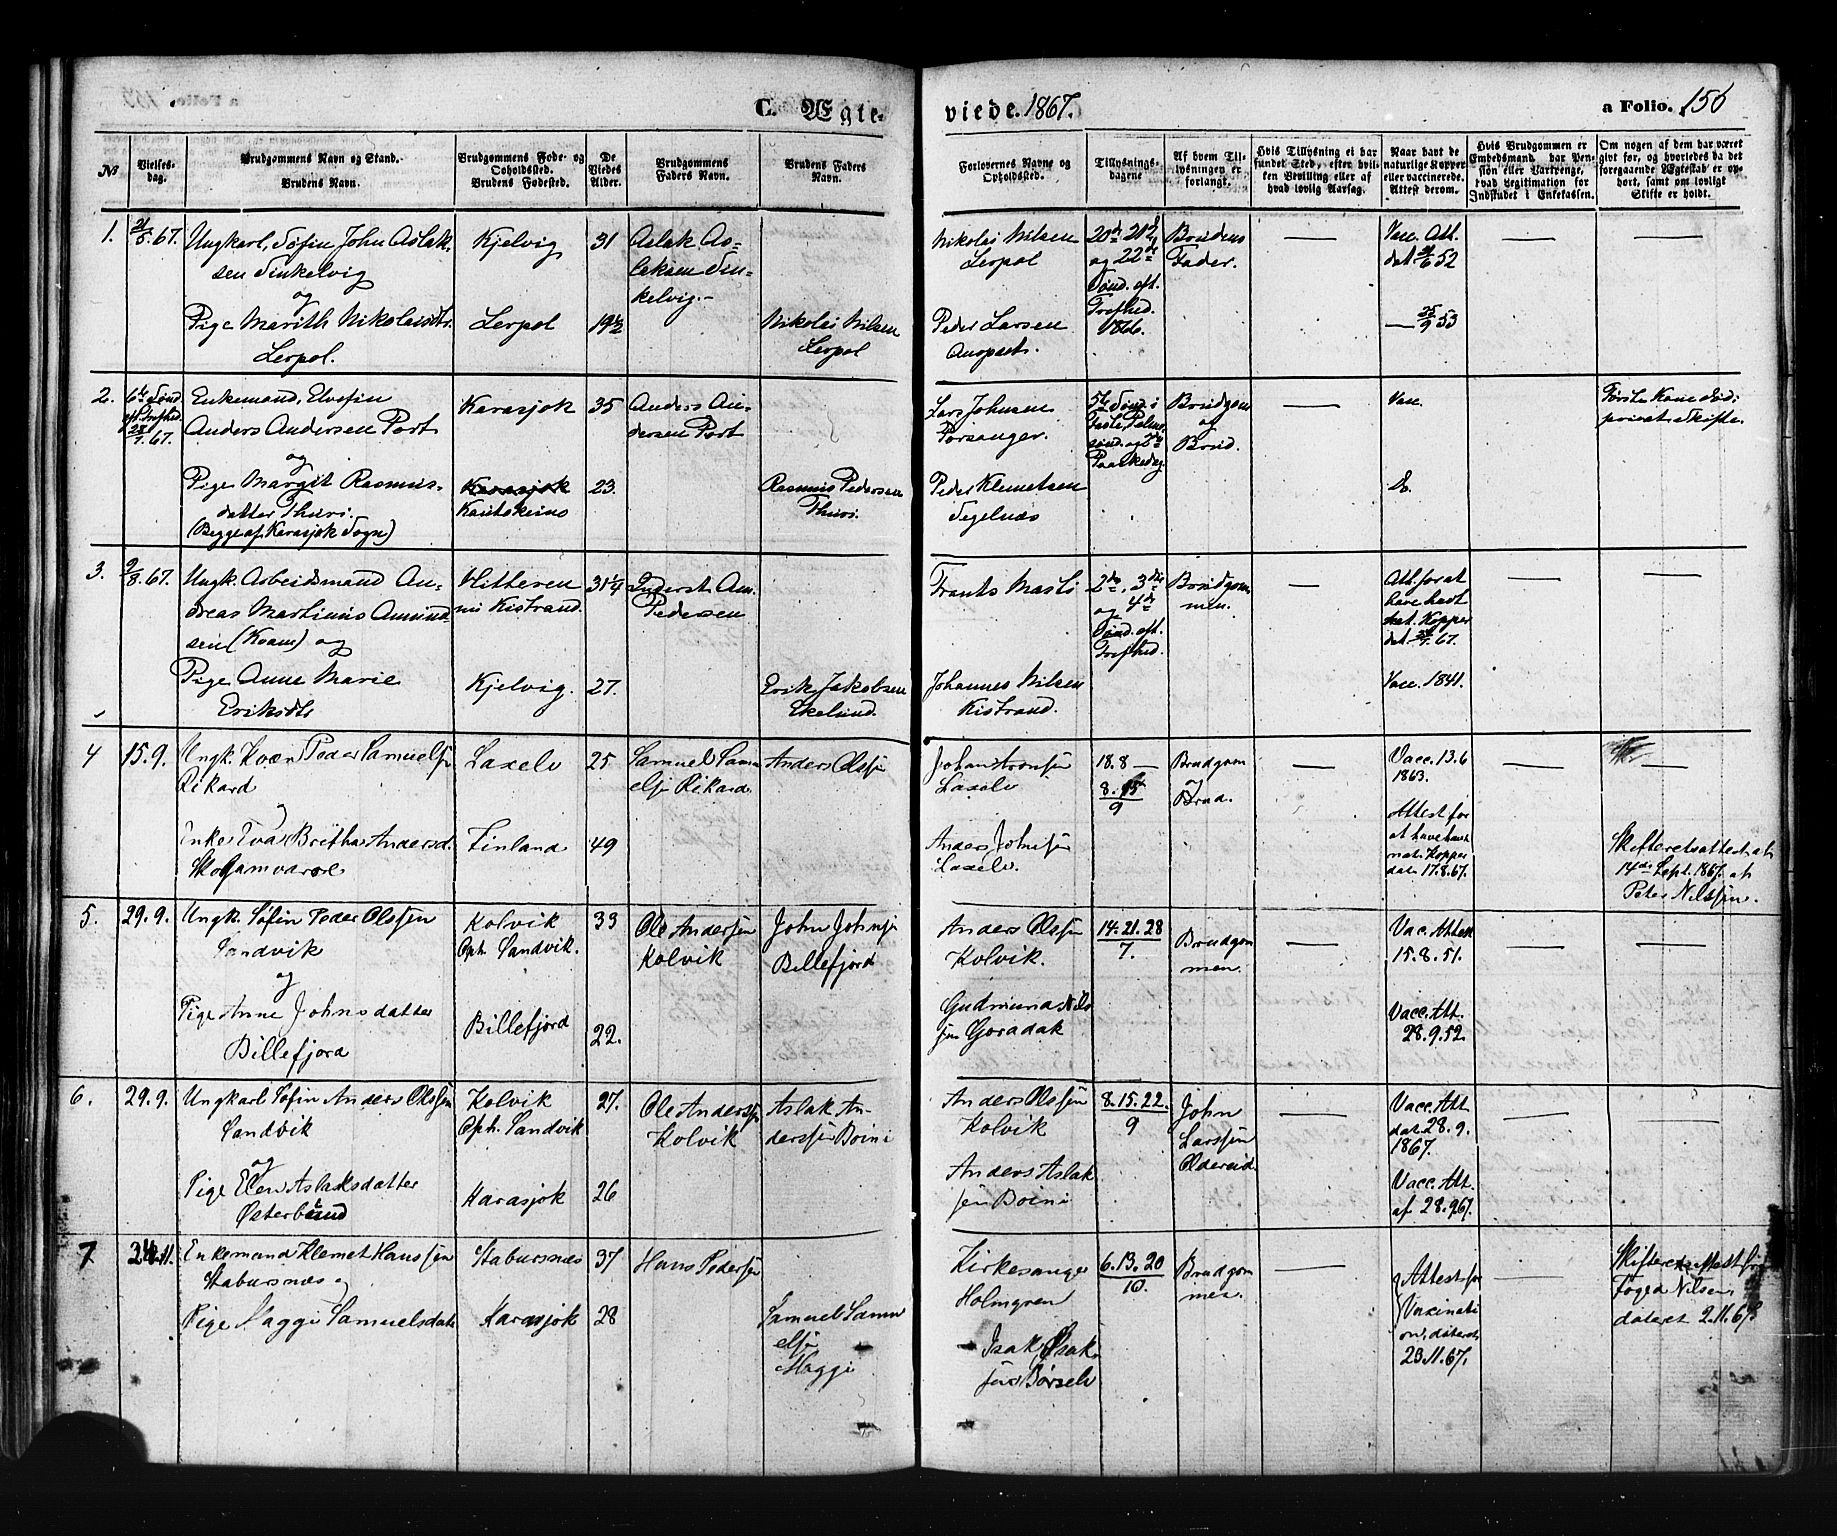 C. Ægte-
viede. 1867.
a Folio. 156
No
Vielses-
dag.
Brudgommens Navn og Stand.
Brudens Navn.
Brudgommens Føde- og
Opholdssted.
Brudens Fødested.
De
Viedes
Alder.
Brudgommens
Faders Navn.
Brudens Faders
Navn.
Forlovernes Navne og
Opholdssted.
Tillysnings-
dagene
Af hvem Til-
lysningen er
forlangt.
Hvis Tillysning ei har
fundet Sted, efter hvil-
ken Bevilling eller af
hvad lovlig Aarsag.
Naar havt de
naturlige Kopper
eller vaccinerede.
Attest derom.
Hvis Brudgommen er
Embedsmand, har Pen-
sion eller Vartpenge,
hvad Legitimation for
Indskudet i Enkekassen.
Om nogen af dem har været
givt før, og hvorledes da det
foregaaende Ægteskab er op-
hørt, samt om lovligt
Skifte er holdt.
1.
67.
Ungkarl, Søfin John Aslak-
sen Sinkelvig
og
Pige Marith Nikolaidtr.
Lerpol.
Kjelvig
Lerpol
31
19½
Aslak As-
laksen Sin-
kelvig.
Nikolai Nilsen
Lerpol
Nikolai Nilsen
Lerpol
Peder Larsen
og 22de
Sønd. eft.
Trefhed.
1866.
Brudens
Fader.
Vacc. Att.
dat 52
53
2.
67.
Enkemand, Elvefin
Anders Andersen Port
og
Pige Margit Rasmus-
datter Thuri.
(Begge af Karasjok Sogn)
Karasjok
Karasjok
Kautokeino
35
23.
Anders An-
dersen Port
Rasmus Pedersen
Thuri.
Lars Johnsen
Porsanger.
Peder Klemetsen
Segelnæs
5te Sønd. i
Faste, Palme-
sønd. og 2den
Paaskedag
Brudgom
og
Brud.
Vacc.
Do.
Første Kone død;
privat Skifte.
3.
9/8. 67.
Ungk. Arbeidsmand An-
dreas Martinus Amund-
sen (Kvam) og
Pige Anne Marie
Eriksdtr
Hitteren
nu Kistrand.
Kjelvig.
31¼
27.
Pedersen
Erik Jakobsen
Ekelund.
Frants Masti
Johannes Nilsen
Kistrand.
2den, 3die
og 4de
Sønd. eft.
Trefhed.
Brudgom-
men.
Att. for at
have havt
nat. Kopper
dat. 67.
Vacc. 1841.
4
15.9.
Ungk. Kvæn Peder Samuelsen
Rikard
og
Enke Eva Britha Andersd.
Laxelv
Finland
25
49
Samuel Samu-
elsen Rikard.
Anders Olssen
Johan Aronsen
Laxelv
Anders Johnsen
Laxelv.
18.8
8. 15
9
Brudgom
og
Brud.
Vacc. 13.6
1863.
Attest for
at have havt
nat. Kopper
dat. 17.8.67.
Skifteretsattest af
14de Sept. 1867. af
Peter Nilssen.
5.
29.9.
Ungk. Søfin Peder Olssen
Sandvik
og
Pige Anne Johnsdatter
Billefjord
Kolvik
Oph. Sandvik.
Billefjord
33
22.
Ole Anderssen
Kolvik
John Johnsen
Billefjord
Anders Olssen
Kolvik.
Gudmund Nils-
sen Goradak
14. 21. 28
7.
Brudgom-
men.
Vac. Attest
15.8.51.
Vacc. Att.
28.9.52.
6.
29.9.
Ungkarl Søfin Anders Olssen
Sandvik
og
Pige Elen Aslaksdatter
Østerbund
Kolvik
Oph. Sandvik
Karasjok
27.
26
Ole Anderssen
Kolvik
Aslak An-
derssen Boini
Anders Olssen
Kolvik
Anders Aslak-
sen Boini
8. 15. 22.
9
John
Larssen
Oldereid
Vacc. Att.
dat. 28.9.
1867.
Vacc. Att.
af 28.9.67.
7
24.11.
Enkemand Klemet Hanssen
Stabursnæs og
Pige Maggi Samuelsdatr
Stabursnæs
Karasjok
37
28
Hans Pedersen
Samuel Samu-
elsen
Maggi
Kirkesanger
Holmgren
Isak Isak-
sen Børselv
6. 13. 20
10.
Brudgom-
men.
Attest for
Vaxinati-
on, dateret
23.11.67.
Skifteretsattest fra
Foged Nilsen,
dateret 2.11.67